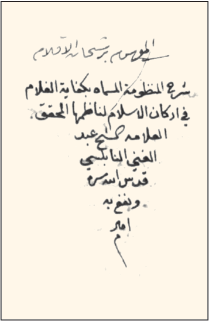 الموسوم برشحات الاقلام
شرح المنظومة المسماه بكفاية الغلام
في اركان الاسلام لناظمها المحقق
العلامه الشيخ عبد
الغني النابلسي
قدس الله سره
ونفع به
امين
م